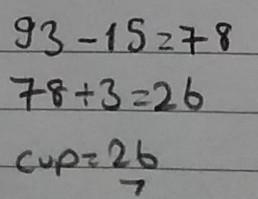 93 - 15 = 78
78 ÷ 3 = 26
cup = 26